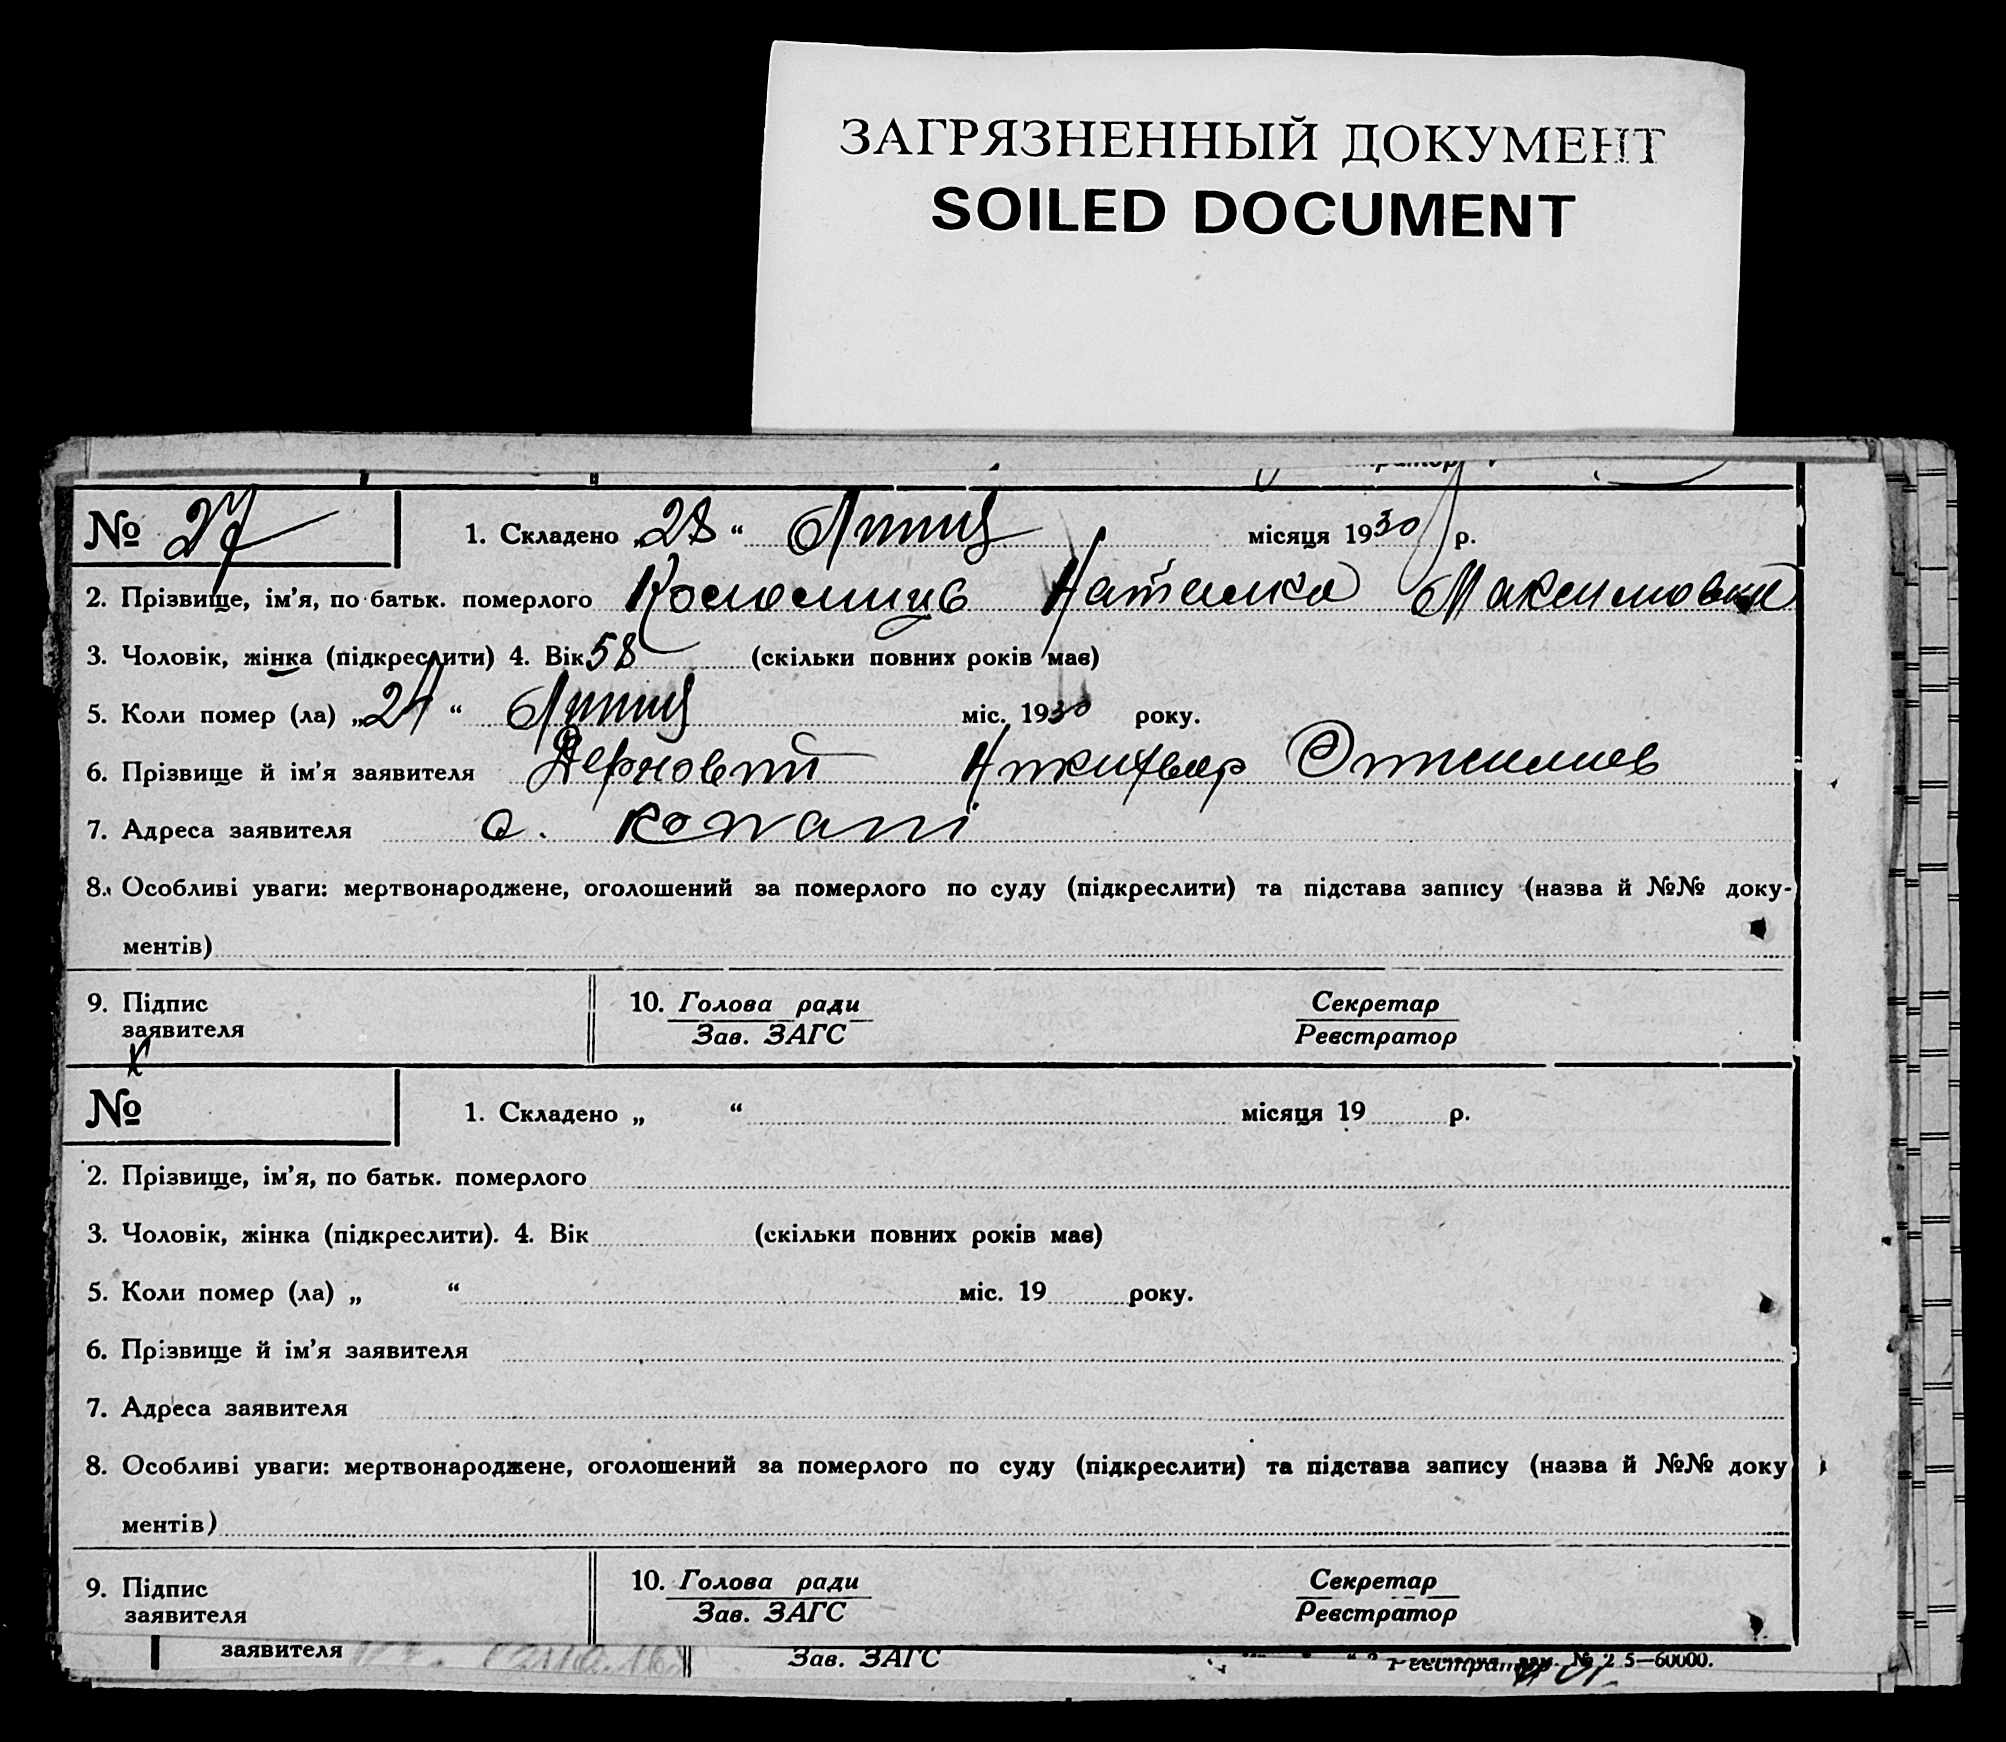 ЗАГРЯЗНЕННЫЙ ДОКУМЕНТ
SOILED DOCUMENT
№ 27
1. Складено „28“ Липця місяця 1930 р.
2. Прізвище, ім'я, по батьк. померлого Наталка Максимовна
3. Чоловік, жінка (підкреслити) 4. Вік 58 (скільки повних років має)
5. Коли помер (ла) „24“ Липця міс. 1930 року.
6. Прізвище й ім'я заявителя Дерновий
7. Адреса заявителя с.
8. Особливі уваги: мертвонароджене, оголошений за померлого по суду (підкреслити) та підстава запису (назва й №№ доку-
ментів)
9. Підпис
заявителя
10. Голова ради
Зав. ЗАГС
Секретар
Реєстратор
№
1. Складено „ “ місяця 19 р.
2. Прізвище, ім'я, по батьк. померлого
3. Чоловік, жінка (підкреслити). 4. Вік (скільки повних років має)
5. Коли помер (ла) „ “ міс. 19 року.
6. Прізвище й ім'я заявителя
7. Адреса заявителя
8. Особливі уваги: мертвонароджене, оголошений за померлого по суду (підкреслити) та підстава запису (назва й №№ доку
ментів)
9. Підпис
заявителя
10. Голова ради
Зав. ЗАГС
Секретар
Реєстратор
заявителя Зав. ЗАГС Реєстратор 5—60000.